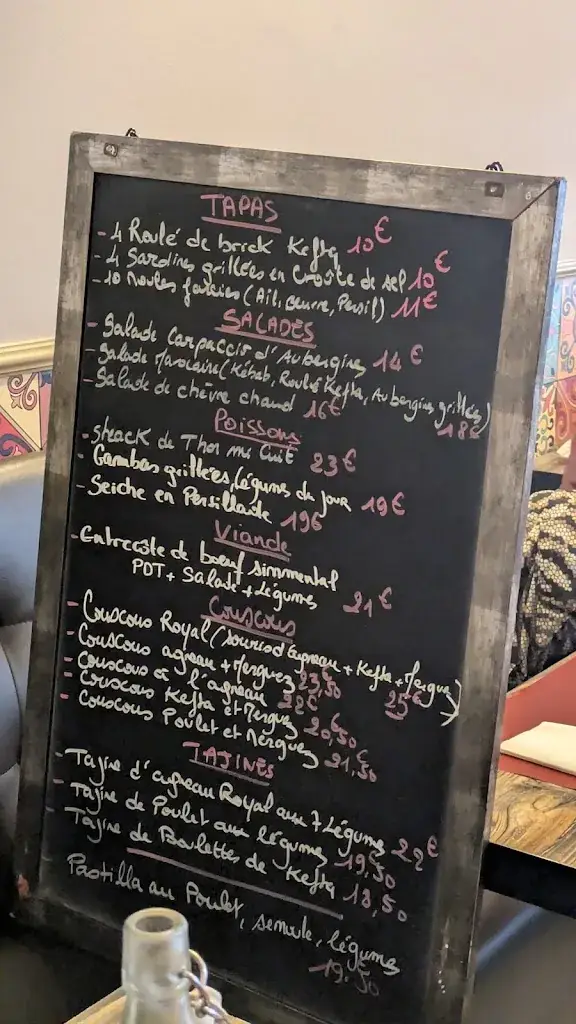 TAPAS
- 4 Roulé de brick Kefta 10€
- 4 Sardines grillées en Croûte de sel 10€
- 10 Moules farcies (Ail, beurre, Persil) 11€
SALADES
- Salade Carpaccio d'Aubergines 14€
- Salade Marocaine (Kébab, Roulé Kefta, Aubergines grillées) 18€
- Salade de chèvre chaud 16€
Poissons
- Steack de Thon mi Cuit 23€
- Gambas grillées, légumes du jour 19€
- Seiche en Persillade 19€
Viande
- Entrecôte de boeuf simmental
PDT + Salade + légumes 21€
Couscous
- Couscous Royal (souris d'agneau + Kefta + Merguez) 25€
- Couscous agneau + Merguez 23,50
- Couscous à l'agneau 22€
- Couscous Kefta et Merguez 20,50
- Couscous Poulet et Merguez 21,50€
TAJINES
- Tajine d'agneau Royal aux 7 Légumes 22€
- Tajine de Poulet aux légumes 19,50
- Tajine de Boulettes de Kefta 18,50
Pastilla au Poulet, semoule, légumes
19.50